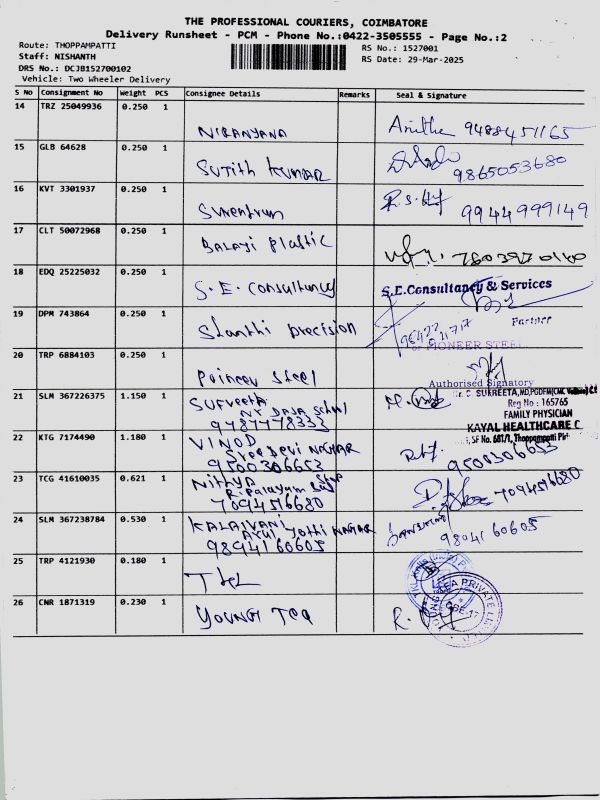 THE PROFESSIONAL COURIERS, COIMBATORE
Delivery Runsheet - PCM - Phone No.:0422-3505555 - Page No.:2
Route: THOPPAMPATTI
RS No.: 1527001
Staff: NISHANTH
RS Date: 29-Mar-2025
DRS No.: DCJB152700102
Vehicle: Two Wheeler Delivery
S No Consignment No Weight PCS Consignee Details Remarks Seal & Signature
14 TRZ 25049936 0.250 1
NIRANYANA 9488451165
15 GLB 64628 0.250 1
SUJITH KUMAR 9865053680
16 KVT 3301937 0.250 1
R.S. 9944999149
17 CLT 50072968 0.250 1
BALAJI Plastic
18 EDQ 25225032 0.250 1
S.E. Consultancy S.E.Consultancy & Services
Partner
19 DPM 743864 0.250 1
Shanthi precision
PIONEER STEEL
20 TRP 6884103 0.250 1
Poineer Steel
Authorised Signatory
21 SLM 367226375 1.150 1
SURVEETA
SCHOOL
9487778333
SUKREETA,MD,PGDFM(CMC
Reg No : 165765
FAMILY PHYSICIAN
KAYAL HEALTHCARE C
SF No. 681/1, Thoppampatti
22 KTG 7174490 1.180 1
VINOD
Sree Devi NAGAR
9500306653 9500306653
23 TCG 41610035 0.621 1
Nithya
Ripalayam Bus Stop
7094516680 7094516680
24 SLM 367238784 0.530 1
KALAIVANI
Arul Jothi NAGAR
9894160605 9894160605
25 TRP 4121930 0.180 1
26 CNR 1871319 0.230 1
YOUNG TEA